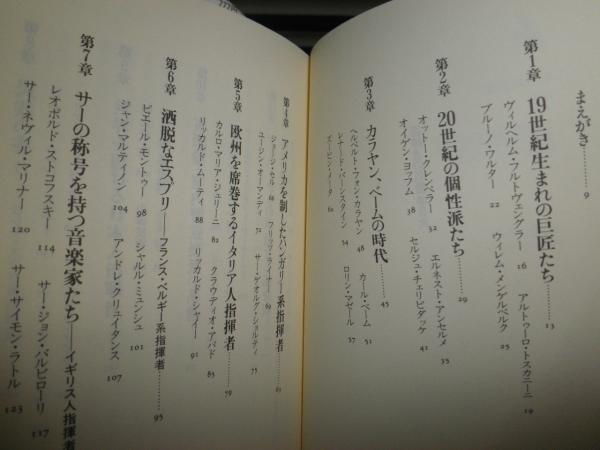 まえがき………9
第1章 19世紀生まれの巨匠たち………13
ヴィルヘルム・フルトヴェングラー 16 アルトゥーロ・トスカニーニ 19
ブルーノ・ワルター 22 ウィレム・メンゲルベルク 25
第2章 20世紀の個性派たち………29
オットー・クレンペラー 32 エルネスト・アンセルメ 35
オイゲン・ヨッフム 38 セルジュ・チェリビダッケ 41
第3章 カラヤン、ベームの時代………45
ヘルベルト・フォン・カラヤン 48 カール・ベーム 51
レナード・バーンスタイン 54 ロリン・マゼール 57
ズービン・メータ
第4章 アメリカを制したハンガリー系指揮者………63
ジョージ・セル 66 フリッツ・ライナー 69
ユージン・オーマンディ 72 サー・ゲオルグ・ショルティ 75
第5章 欧州を席巻するイタリア人指揮者………79
カルロ・マリア・ジュリーニ 82 クラウディオ・アバド 85
リッカルド・ムーティ 88 リッカルド・シャイー 91
第6章 洒脱なエスプリ——フランス・ベルギー系指揮者………95
ピエール・モントゥー 98 シャルル・ミュンシュ 101
ジャン・マルティノン 104 アンドレ・クリュイタンス 107
第7章 サーの称号を持つ音楽家たち——イギリス人指揮者
レオポルド・ストコフスキー 114 サー・ジョン・バルビローリ 117
サー・ネヴィル・マリナー 120 サー・サイモン・ラトル 123